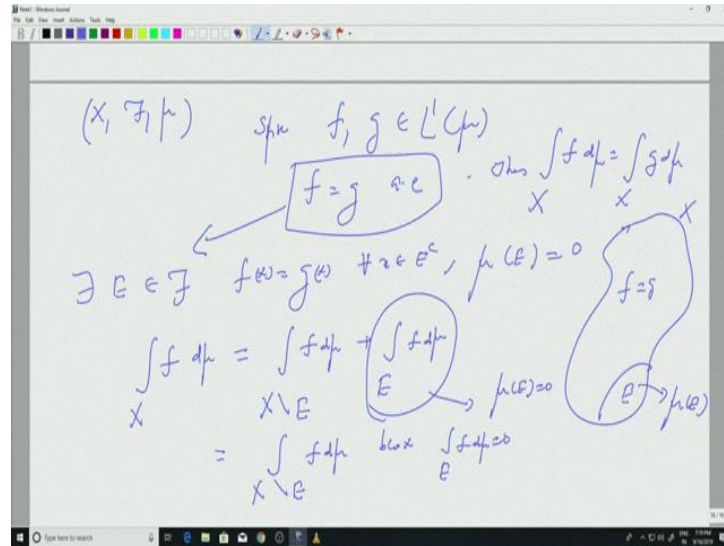 Note1 - Windows Journal
File Edit View Insert Actions Tools Help
(X, ℱ, μ) Spse f, g ∈ L¹(μ)
f = g a.e. then ∫_X f dμ = ∫_X g dμ
∃ E ∈ ℱ f(x) = g(x) ∀ x ∈ E^c, μ(E) = 0
∫_X f dμ = ∫_{X∖E} f dμ + ∫_E f dμ → μ(E)=0
= ∫_{X∖E} f dμ ∫_E f dμ = 0
X
f = g
E → μ(E)
Type here to search
7:19 PM
9/16/2019